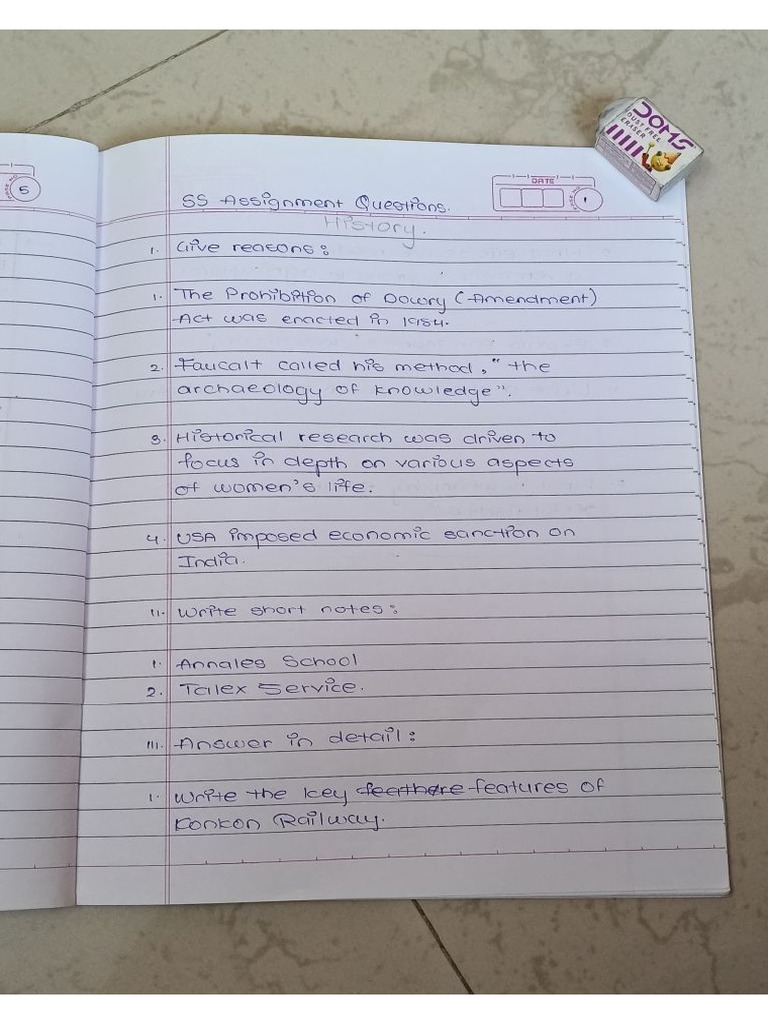 5
DOMS
DUST FREE
ERASER
DATE
1
SS Assignment Questions.
History.
I. Give reasons:
1. The Prohibition of Dowry (Amendment)
Act was enacted in 1984.
2. Faucalt called his method, "the
archaeology of knowledge".
3. Historical research was driven to
focus in depth on various aspects
of women's life.
4. USA imposed economic sanction on
India.
II. Write short notes:
1. Annales School
2. Talex Service.
III. Answer in detail:
1. Write the key feathere features of
Konkon Railway.